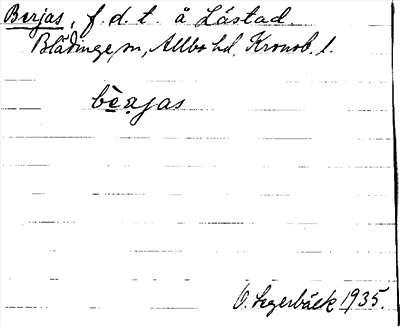 Berjas, f.d. t. å Låstad.
Blädinge sn, Allbo hd, Kronob. l.
bèrjas
O. Segerbäck 1935.